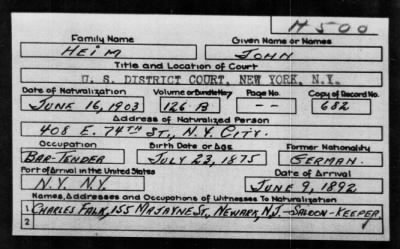 H500
Family Name Given Name or Names
HEIM JOHN
Title and Location of Court
U. S. DISTRICT COURT, NEW YORK, N.Y.
Date of Naturalization Volume or Bundle No Page No. Copy of Record No.
JUNE 16, 1903 126 B -- 682
Address of Naturalized Person
408 E. 74TH ST., N.Y. CITY.
Occupation Birth Date or Age Former Nationality
BAR-TENDER JULY 23, 1875 GERMAN.
Port of Arrival in the United States Date of Arrival
N.Y. N.Y. JUNE 9, 1892
Names, Addresses and Occupations of Witnesses To Naturalization
1 CHARLES FALK, 155 MAJAYNE ST., NEWARK, N.J. - SALOON-KEEPER.
2